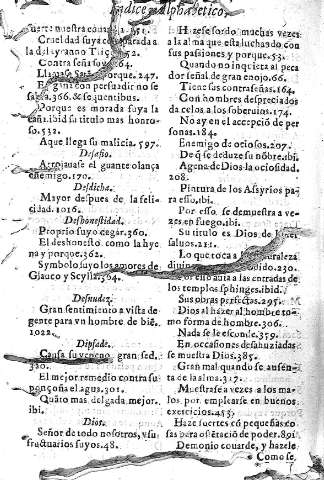 Indice Alphabetico.
suerte nuestra con 951.
Crueldad suya comparada a
la del tyranno 952.
Contra seña suya 64.
Llamase Sara porque. 247.
Engaña con persuadir no se
sabrà. 366. & sequentibus.
Porque es morada suya la
caña. ibid su titulo mas honro-
so. 532.
Aque llega su malicia. 597.
Desafio.
Arrojauase el guante o lança
enemigo. 170.
Desdicha.
Mayor despues de la feli-
cidad. 1016.
Deshonestidad.
Proprio suyo cegar. 360.
El deshonesto como la hye-
na y porque. 362.
Symbolo suyo los amores de
Glauco y Scylla. 364.
Desnudez.
Gran sentimiento a vista de
gente para vn hombre de biē.
1022.
Dipsade.
Causa su veneno gran sed.
320.
El mejor remedio contra su
ponçoña el agua. 301.
Quāto mas delgada mejor.
ibi.
Dios.
Señor de todo nosotros, vsu-
fructuarios suyos. 48.
Hazese sordo muchas vezes
a la alma que esta luchando con
sus passiones y porque. 53.
Quando no inquieta al peca
dor señal de gran enojo. 66.
Tiene sus contraseñas. 164.
Con hombres despreciados
da celos a los soberuios. 174.
No ay en el accepciō de per
sonas. 184.
Enemigo de ociosos. 207.
De q̄ se deduze su nōbre. ibi.
Agena de Dios la ociosidad.
208.
Pintura de los Assyrios pa-
ra esso. ibi.
Por esso se demuestra a ve-
zes en fuego. ibi.
Su titulo es Dios de
saluos. 211.
Lo que toca a naturaleza
diuina 230.
Por esso auia a las entradas de
los templos sphinges. ibid.
Sus obras perfectas. 295.
Dios al hazer al hombre to-
mo forma de hombre. 306.
Nada se le esconde. 359.
En occasiones desahuziadas
se muestra Dios. 385.
Gran mal quando se ausen-
ta de la alma. 317.
Muestrase a vezes a los ma-
los por emplearse en buenos
exercicios. 453.
Haze fuertes cō pequeñas co
sas para ostētaciō de poder. 891
Demonio couarde, y hazele
Como se,